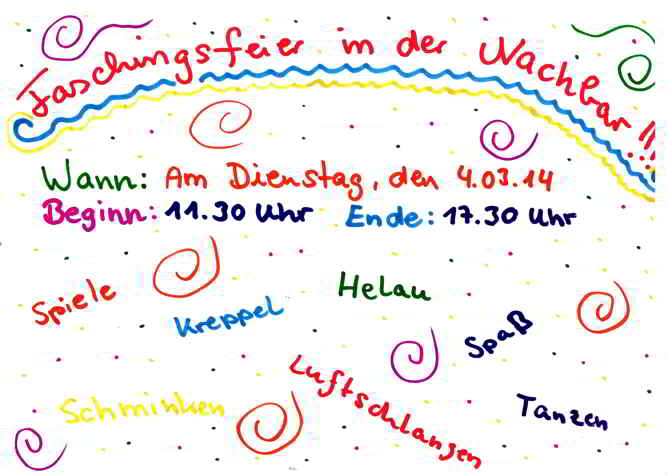 Faschingsfeier in der Nachbar!!!
Wann: Am Dienstag, den 4.03.14
Beginn: 11.30 Uhr Ende: 17.30 Uhr
Spiele
Kreppel
Helau
Spaß
Schminken
Luftschlangen
Tanzen